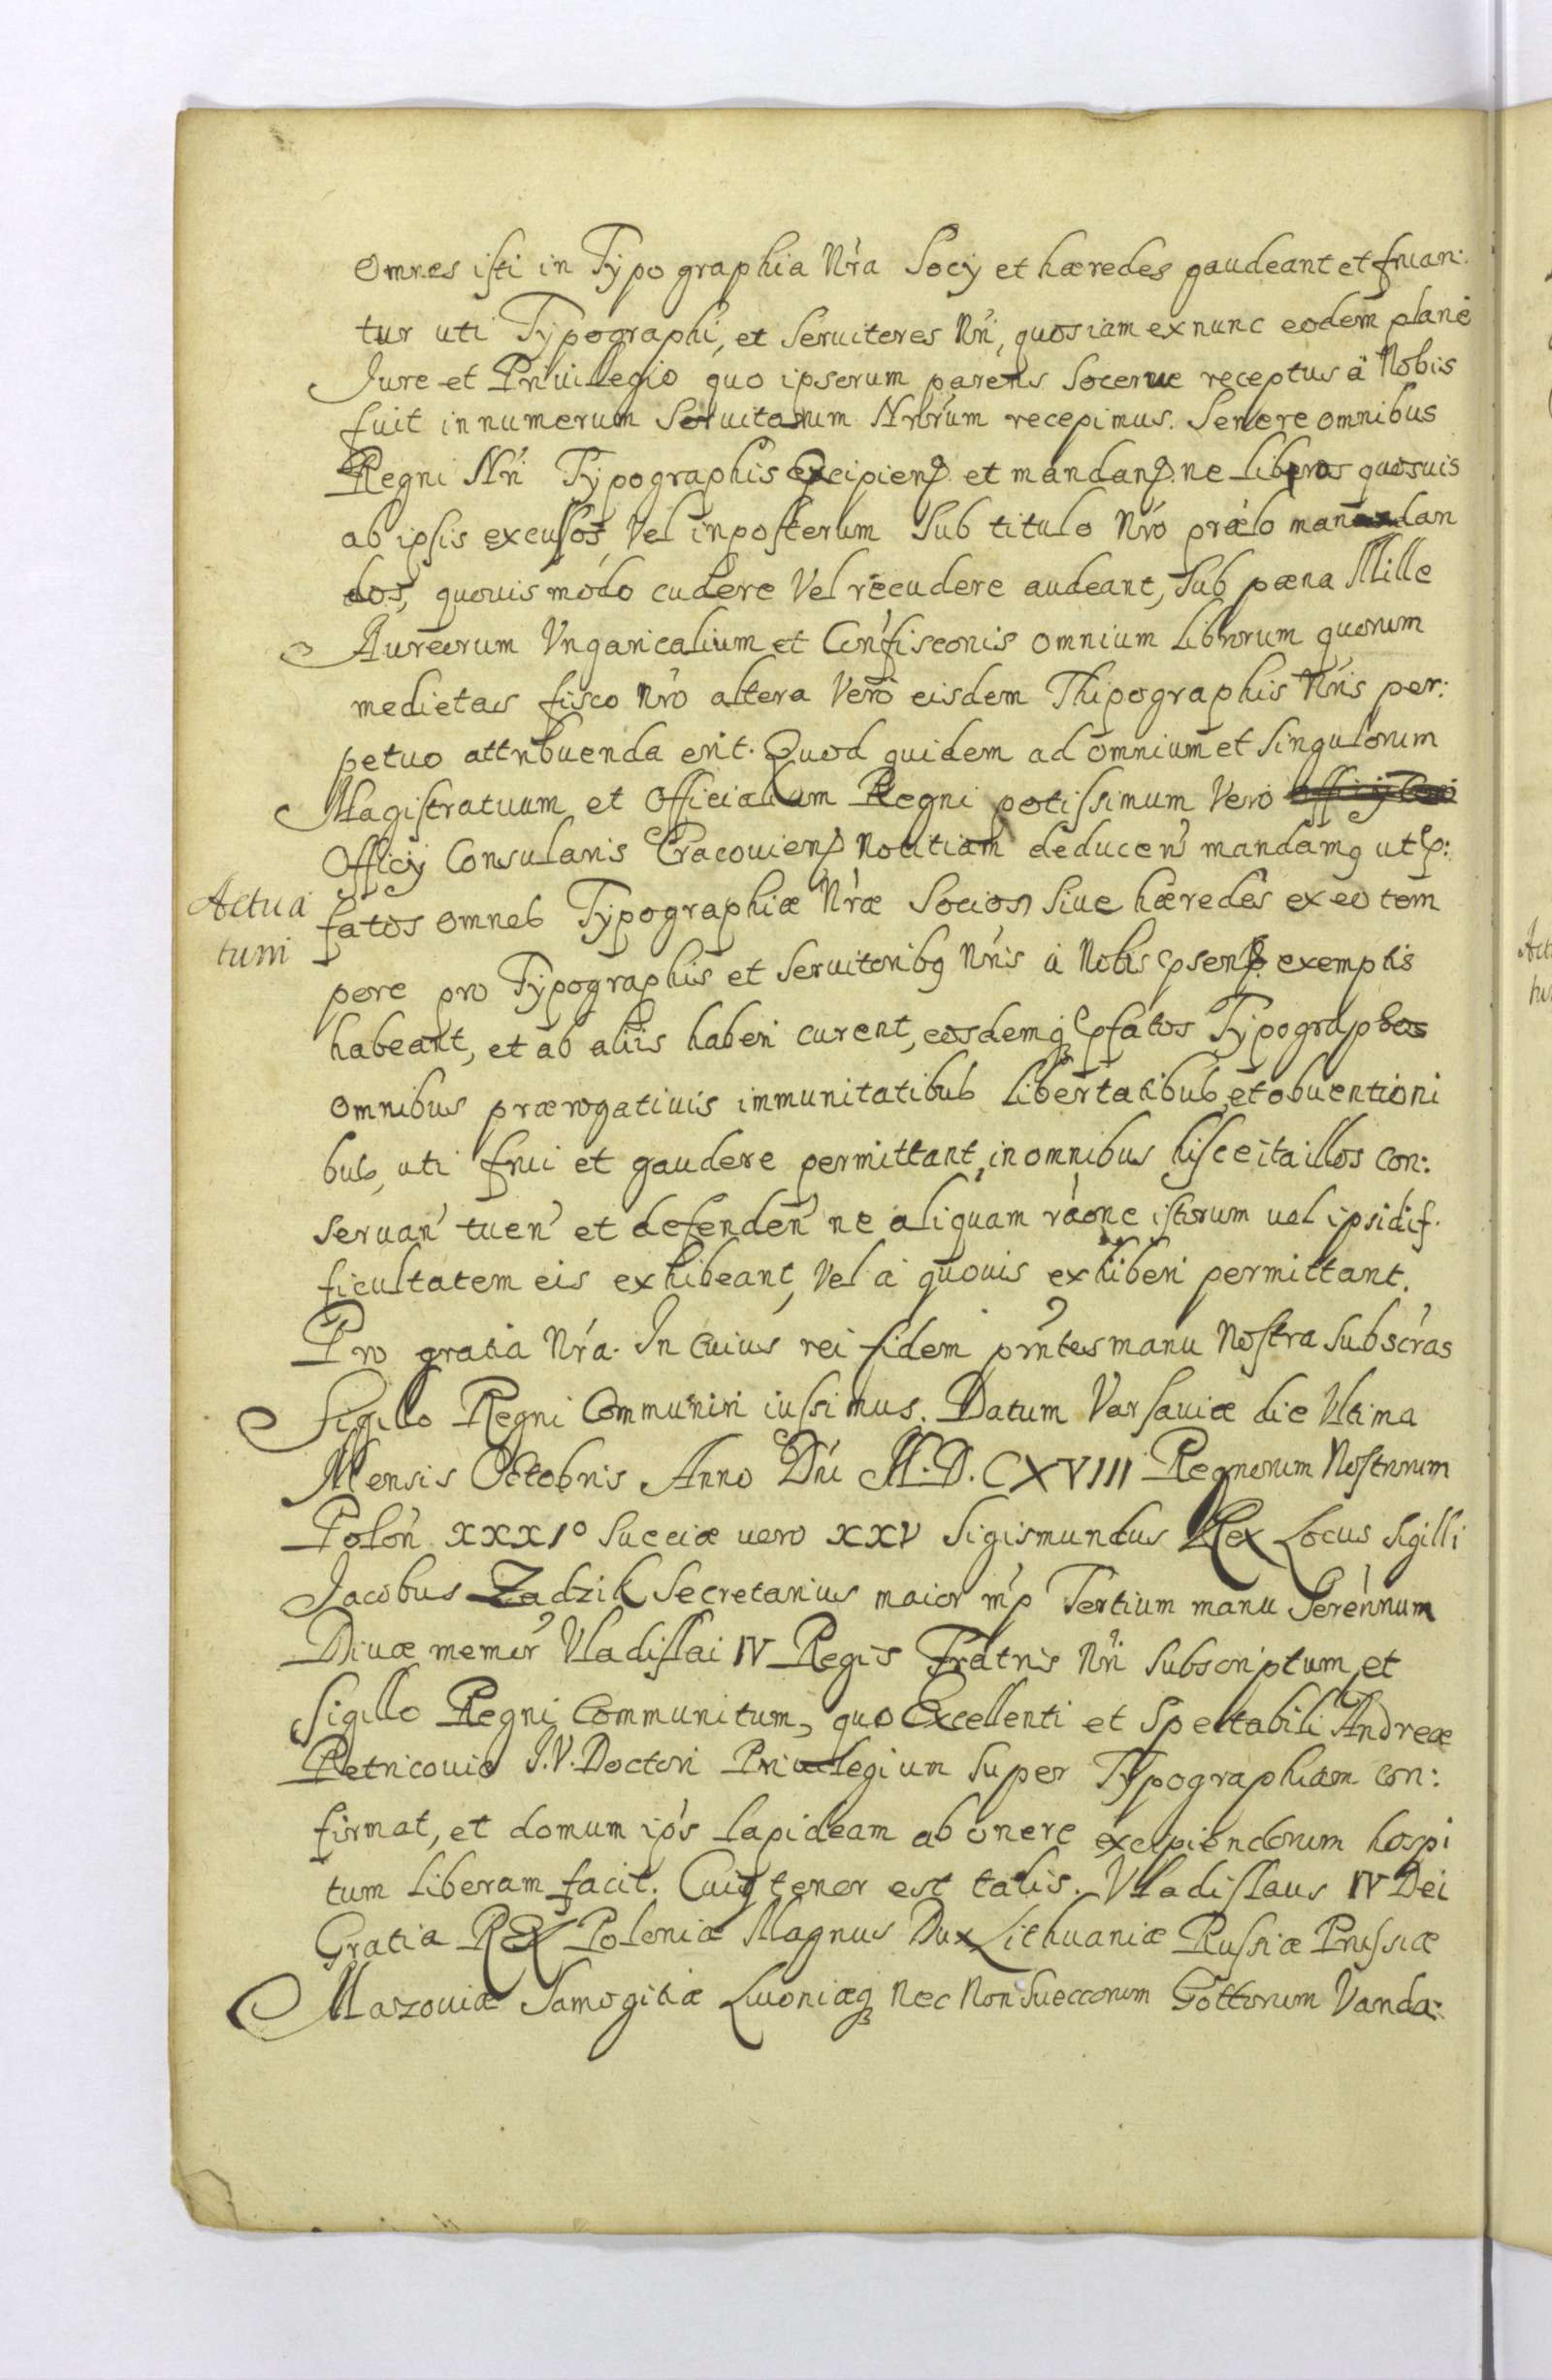 omnes isti in Typographia Nr̃a Socÿ et hæredes gaudeant et fruan:
tur uti Typographi, et Seruitores Nri, quos iam ex nunc eodem planè
Iure et Priuilegio quo ipsorum parens Socerue receptus à Nobis
fuit in numerum Seruitorum Nrorum recepimus. Serere omnibus
Regni Nri Typographis Excipien. et mandan. ne libros quosuis
ab ipsis excussos, Vel inposterum Sub titulo Nro prælo manandan
dos, quouis modo cudere Vel recudere audeant, Sub pæna Mille
Aureorum Vngaricalium et Confisconis omnium librorum quorum
medietas fisco Nro altera Vero eisdem Thipographis Nris per:
petuo attribuenda erit. Quod quidem ad omnium et Singulorum
Magistratuum et Officialium Regni potissimum Vero
Officÿ Consularis Cracouien. Notitiam deducen mandamq utp:
Actua
tum
fatos omnes Typographiæ Nræ Socios Siue hæredes ex eo tem
pere pro Typographis et Seruitoribq Nris à Nobis psen. exemptis
habeant, et ab aliis haberi curent, eosdemq pfatos Typographos
omnibus prærogatiuis immunitatibus libertatibus, et obuentioni
bus, uti frui et gaudere permittant, in omnibus hisce ita illos con:
seruan tuen et defenden ne aliquam raone istorum uel ipsi dif.
ficultatem eis exhibeant, Vel à quouis exhiberi permittant.
Pro gratia Nra. In cuius rei fidem prntes manu Nostra Subscras
Sigillo Regni Communiri iussimus. Datum Varsauiæ die Vltima
Mensis Octobris Anno Dni M.D.CXVIII Regnorum Nostrorum
Polon XXXIº Sueciæ uero XXV Sigismundus Rex Locus Sigilli
Jacobus Zadzik Secretarius maior mp Tertium manu Serennum
Diuæ memor Vladislai IV Regis Fratris Nri Subscriptum, et
Sigillo Regni Communitum, quo Excellenti et Spectabili Andreæ
Petricouio J.V. Doctori Priuilegium Super Typographiam con:
firmat, et domum ips lapideam ab onere excipiendorum hospi
tum liberam facit. Cuiq tenor est talis. Vladislaus IV Dei
Gratia REX Poloniæ Magnus Dux Lithuaniæ Russiæ Prussiæ
Mazouiæ Samogitiæ Liuoniæq nec Non Sueccorum Gottorum Vanda: